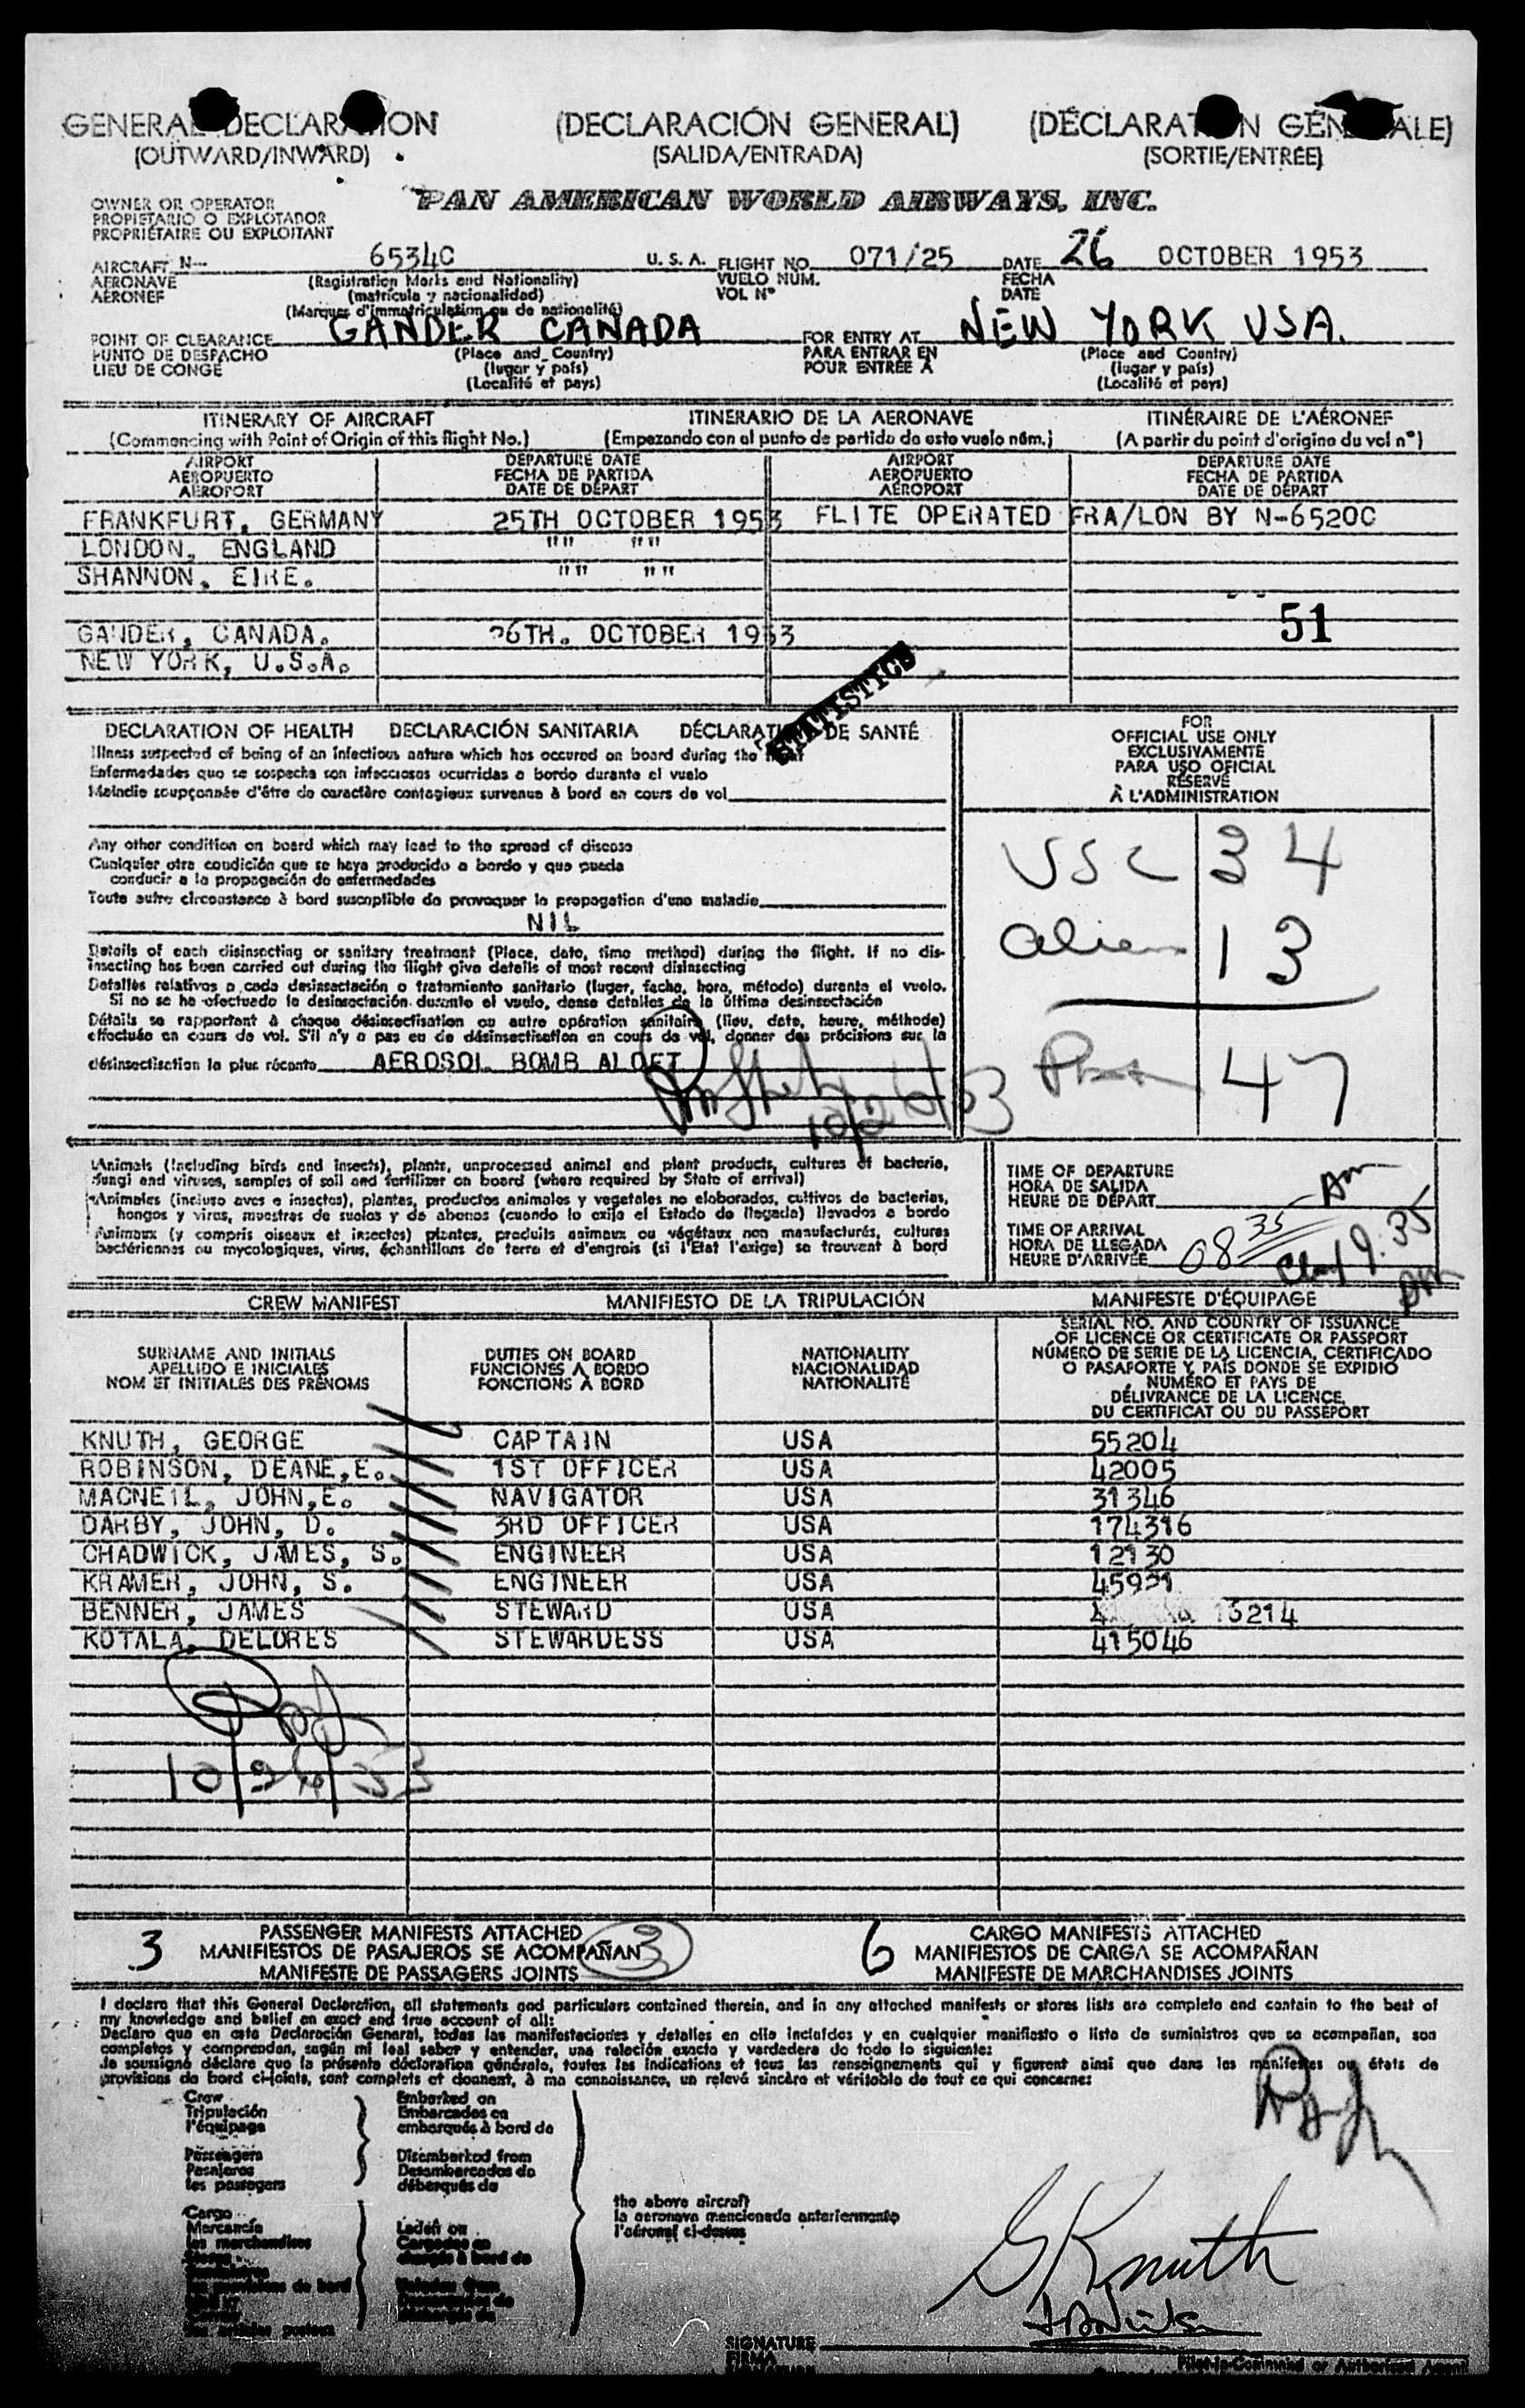 GENERAL DECLARATION (DECLARACIÓN GENERAL) (DÉCLARATION GÉNÉRALE)
(OUTWARD/INWARD) (SALIDA/ENTRADA) (SORTIE/ENTRÉE)
PAN AMERICAN WORLD AIRWAYS, INC.
OWNER OR OPERATOR
PROPIETARIO O EXPLOTADOR
PROPRIÉTAIRE OU EXPLOITANT
AIRCRAFT N- 6534C U. S. A. FLIGHT NO. 071/25 DATE 26 OCTOBER 1953
AERONAVE (Registration Marks and Nationality) VUELO NUM. FECHA
AÉRONEF (matrícula y nacionalidad) VOL Nº DATE
(Marques d'immatriculation ou de nationalité)
POINT OF CLEARANCE GANDER CANADA FOR ENTRY AT NEW YORK USA.
PUNTO DE DESPACHO (Place and Country) PARA ENTRAR EN (Place and Country)
LIEU DE CONGÉ (lugar y país) POUR ENTRÉE À (lugar y país)
(Localité et pays) (Localité et pays)
ITINERARY OF AIRCRAFT ITINERARIO DE LA AERONAVE ITINÉRAIRE DE L'AÉRONEF
(Commencing with Point of Origin of this flight No.) (Empezando con el punto de partida de este vuelo núm.) (A partir du point d'origine du vol nº)
AIRPORT DEPARTURE DATE AIRPORT DEPARTURE DATE
AEROPUERTO FECHA DE PARTIDA AEROPUERTO FECHA DE PARTIDA
AÉROPORT DATE DE DÉPART AÉROPORT DATE DE DÉPART
FRANKFURT, GERMANY 25TH OCTOBER 1953 FLITE OPERATED FRA/LON BY N-6520C
LONDON, ENGLAND "" ""
SHANNON, EIRE. "" ""
51
GANDER, CANADA. 26TH. OCTOBER 1953
NEW YORK, U.S.A.
STATISTICS
DECLARATION OF HEALTH DECLARACIÓN SANITARIA DÉCLARATION DE SANTÉ
Illness suspected of being of an infectious nature which has occured on board during the flight
Enfermedades que se sospecha son infecciosas ocurridas a bordo durante el vuelo
Maladie soupçonnée d'être de caractère contagieux survenue à bord en cours de vol
Any other condition on board which may lead to the spread of disease
Cualquier otra condición que se haya producido a bordo y que pueda
conducir a la propagación de enfermedades
Toute autre circonstance à bord susceptible de provoquer la propagation d'une maladie
NIL
Details of each disinsecting or sanitary treatment (Place, date, time method) during the flight. If no dis-
insecting has been carried out during the flight give details of most recent disinsecting
Detalles relativos a cada desinsectación o tratamiento sanitario (lugar, fecha, hora, método) durante el vuelo.
Si no se ha efectuado la desinsectación durante el vuelo, dense detalles de la última desinsectación
Détails se rapportant à chaque désinsectisation ou autre opération sanitaire (lieu, date, heure, méthode)
effectuée en cours de vol. S'il n'y a pas eu de désinsectisation en cours de vol, donner des précisions sur la
désinsectisation la plus récente AEROSOL BOMB ALOFT
10/26/53
FOR
OFFICIAL USE ONLY
EXCLUSIVAMENTE
PARA USO OFICIAL
RÉSERVÉ
À L'ADMINISTRATION
USC 34
alien 13
47
Animals (including birds and insects), plants, unprocessed animal and plant products, cultures of bacteria,
fungi and viruses, samples of soil and fertilizer on board (where required by State of arrival)
Animales (incluso aves e insectos), plantas, productos animales y vegetales no elaborados, cultivos de bacterias,
hongos y virus, muestras de suelos y de abonos (cuando lo exija el Estado de llegada) llevados a bordo
Animaux (y compris oiseaux et insectes) plantes, produits animaux ou végétaux non manufacturés, cultures
bactériennes ou mycologiques, virus, échantillons de terre et d'engrais (si l'Etat l'exige) se trouvent à bord
TIME OF DEPARTURE
HORA DE SALIDA
HEURE DE DÉPART
TIME OF ARRIVAL
HORA DE LLEGADA
HEURE D'ARRIVÉE 08 35 AM
9:35 AM
CREW MANIFEST MANIFIESTO DE LA TRIPULACIÓN MANIFESTE D'ÉQUIPAGE
SURNAME AND INITIALS DUTIES ON BOARD NATIONALITY SERIAL NO. AND COUNTRY OF ISSUANCE
APELLIDO E INICIALES FUNCIONES A BORDO NACIONALIDAD OF LICENCE OR CERTIFICATE OR PASSPORT
NOM ET INITIALES DES PRÉNOMS FONCTIONS À BORD NATIONALITÉ NÚMERO DE SERIE DE LA LICENCIA, CERTIFICADO
O PASAPORTE Y PAÍS DONDE SE EXPIDIÓ
NUMÉRO ET PAYS DE
DÉLIVRANCE DE LA LICENCE,
DU CERTIFICAT OU DU PASSEPORT
KNUTH, GEORGE CAPTAIN USA 55204
ROBINSON, DEANE,E. 1ST OFFICER USA 42005
MACNEIL, JOHN,E. NAVIGATOR USA 31346
DARBY, JOHN, D. 3RD OFFICER USA 174316
CHADWICK, JAMES, S. ENGINEER USA 12130
KRAMER, JOHN, S. ENGINEER USA 45921
BENNER, JAMES STEWARD USA 16214
KOTALA, DELORES STEWARDESS USA 415046
10/26/53
3 PASSENGER MANIFESTS ATTACHED 3 6 CARGO MANIFESTS ATTACHED
MANIFIESTOS DE PASAJEROS SE ACOMPAÑAN MANIFIESTOS DE CARGA SE ACOMPAÑAN
MANIFESTE DE PASSAGERS JOINTS MANIFESTE DE MARCHANDISES JOINTS
I declare that this General Declaration, all statements and particulars contained therein, and in any attached manifests or stores lists are complete and contain to the best of
my knowledge and belief an exact and true account of all:
Declaro que en esta Declaración General, todas las manifestaciones y detalles en ella incluídos y en cualquier manifiesto o lista de suministros que se acompañan, son
completos y comprenden, según mi leal saber y entender, una relación exacta y verdadera de todo lo siguiente:
Je soussigné déclare que la présente déclaration générale, toutes les indications et tous les renseignements qui y figurent ainsi que dans les manifestes ou états de
provisions de bord ci-joints, sont complets et donnent, à ma connaissance, un relevé sincère et véritable de tout ce qui concerne:
Crew Embarked on
Tripulación Embarcados en
l'équipage embarqués à bord de
Passengers Disembarked from
Pasajeros Desembarcados de
les passagers débarqués de
the above aircraft
la aeronave mencionada anteriormente
l'aéronef ci-dessus
Cargo Laden on
Mercancía Cargados en
les marchandises chargés à bord de
G Knuth
SIGNATURE
FIRMA
Pilot-in-Command or Authorized Agent